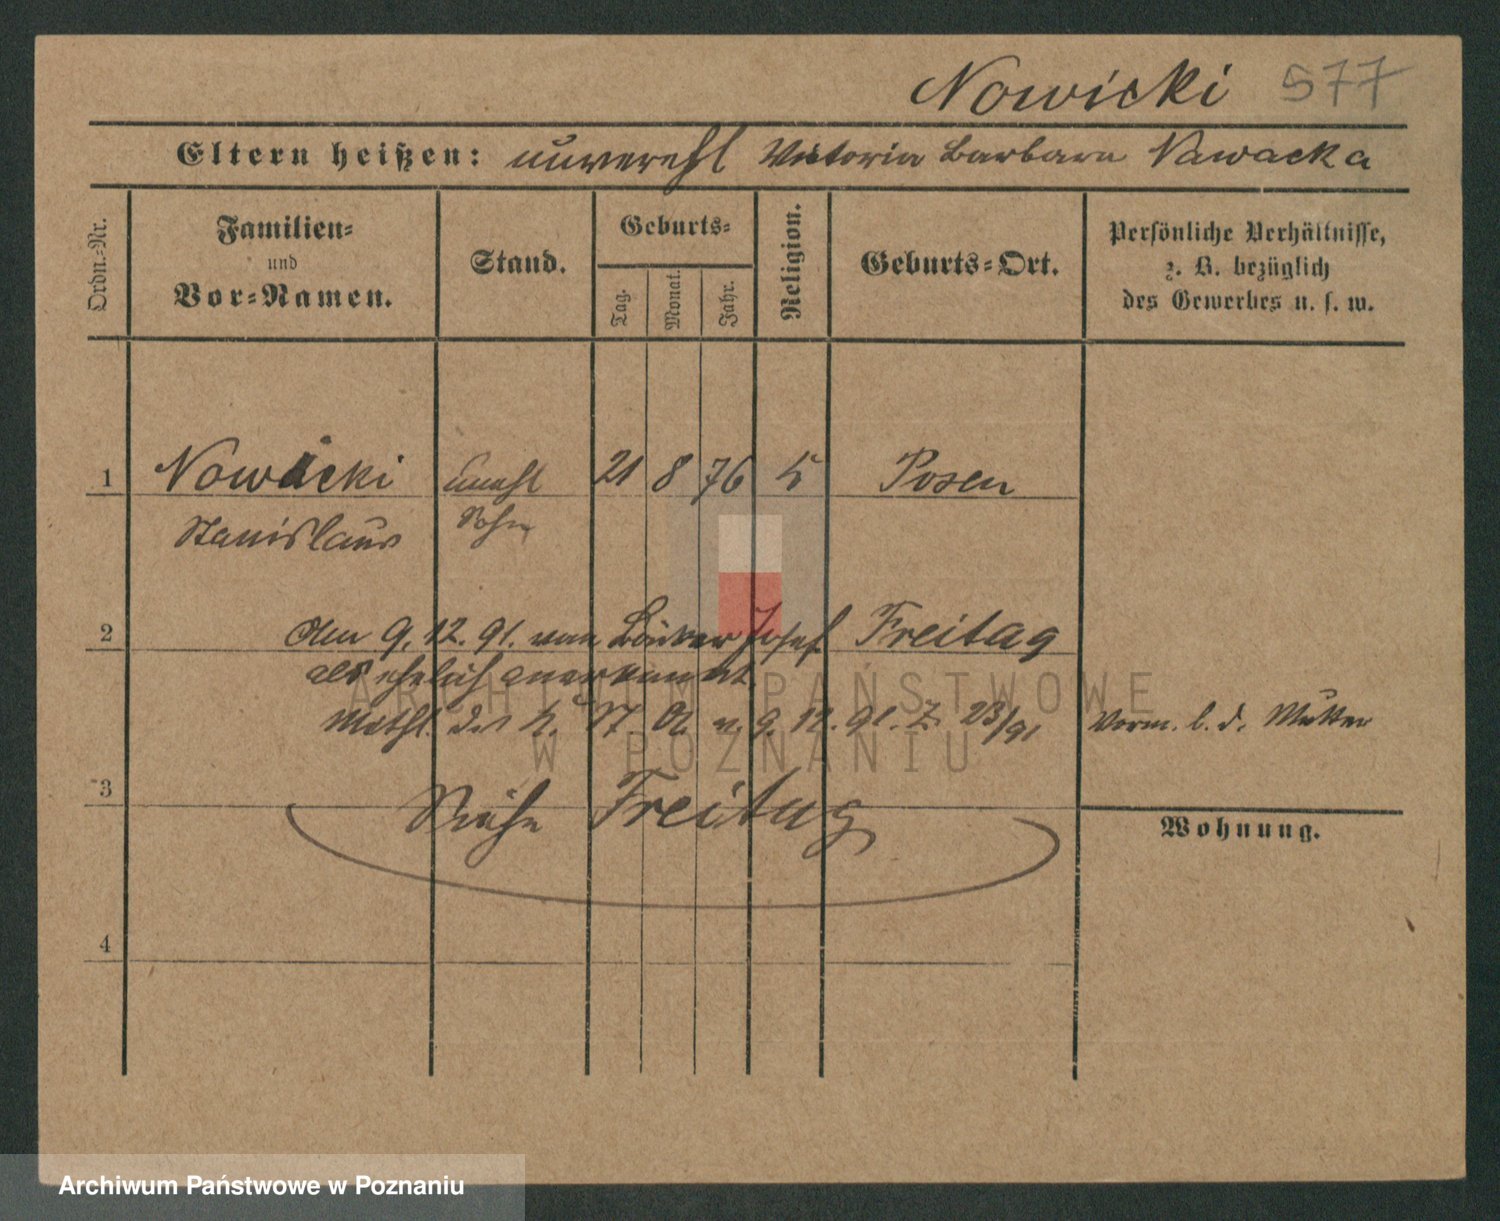 Nowicki 577
Eltern heißen: unverehl Victoria Barbara Nawacka
Ordn.-Nr.
Familien-
und
Vor-Namen.
Stand.
Geburts-
Tag.
Monat.
Jahr.
Religion.
Geburts-Ort.
Persönliche Verhältnisse,
z. B. bezüglich
des Gewerbes u. s. w.
1 Nowicki unehl 21 8 76 k Posen
Stanislaus Sohn
2 Am 9. 12. 91. vom Bäcker Josef Freitag
als ehelich anerkannt.
ARCHIWUM PAŃSTWOWE
W POZNANIU
d. 9. 12. 91. 23/91 Vorm. b. d. Mutter
3 Siehe Freitag
Wohnung.
4
Archiwum Państwowe w Poznaniu